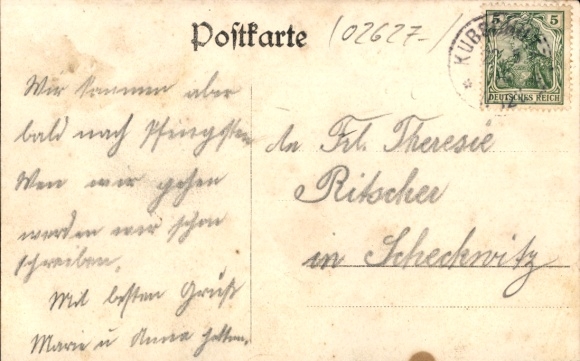 Postkarte
(02627-)
5 5
DEUTSCHES REICH
KUBSCHÜTZ
12
Wir kommen aber
bald nach Pfingsten.
Wen wir gehen
werden wir schon
schreiben.
Mit besten Gruß
Marie u Anna
An Frl. Theresie
Ritscher
in Scheckwitz